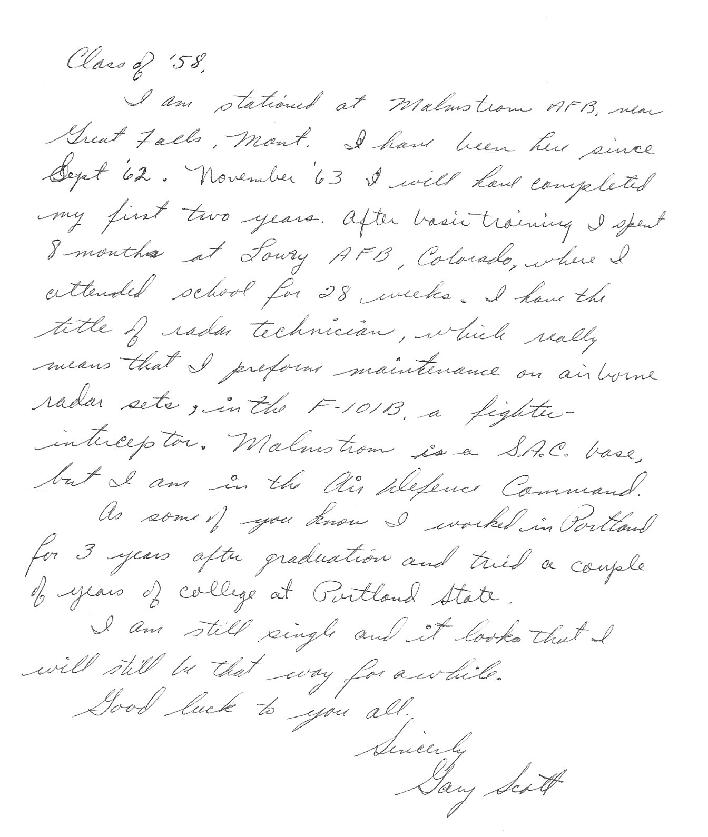 Class of '58,
I am stationed at Malmstrom AFB, near
Great Falls, Mont. I have been here since
Sept '62. November '63 I will have completed
my first two years. After basic training I spent
8 months at Lowry AFB, Colorado, where I
attended school for 28 weeks. I have the
title of radar technician, which really
means that I preform maintenance on airborne
radar sets, in the F-101B, a fighter-
interceptor. Malmstrom is a S.A.C. base,
but I am in the Air Defence Command.
As some of you know I worked in Portland
for 3 years after graduation and tried a couple
of years of college at Portland State.
I am still single and it looks that I
will still be that way for awhile.
Good luck to you all.
Sincerly
Gary Scott